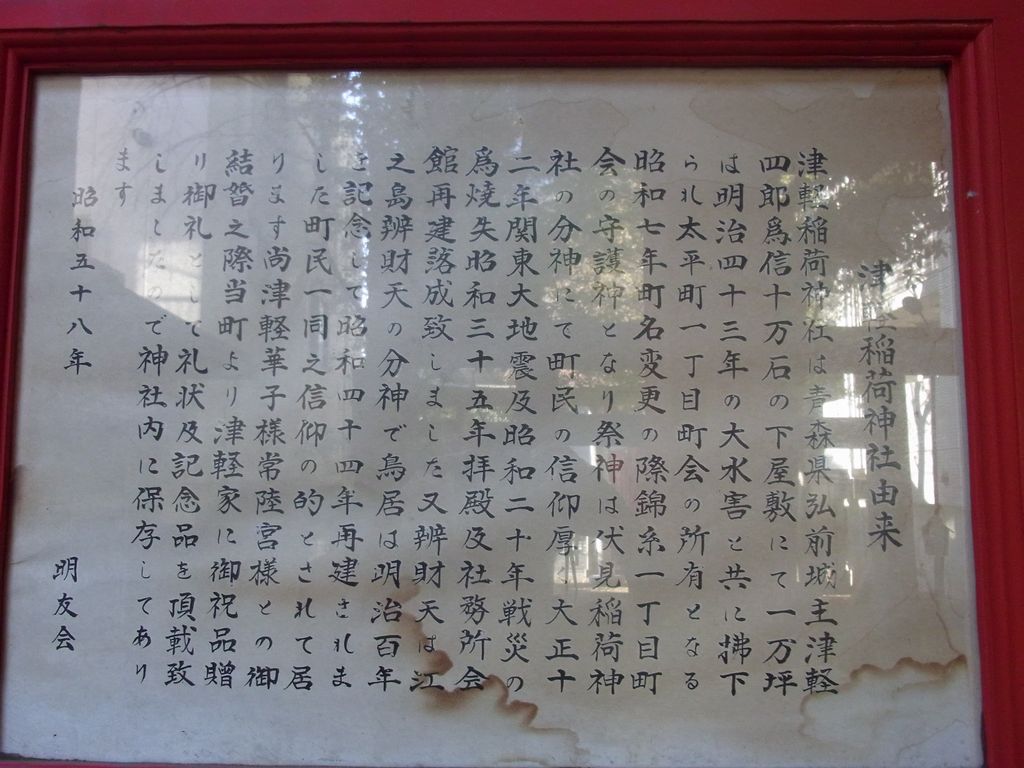 津軽稲荷神社由来
津軽稲荷神社は青森県弘前城主津軽
四郎為信十万石の下屋敷にて一万坪
は明治四十三年の大水害と共に拂下
られ太平町一丁目町会の所有となる
昭和七年町名変更の際錦糸一丁目町
会の守護神となり祭神は伏見稲荷神
社の分神にて町民の信仰厚く大正十
二年関東大地震及昭和二十年戦災の
為焼失昭和三十五年拝殿及社務所会
館再建落成致しました又辨財天は江
之島辨財天の分神で鳥居は明治百年
を記念して昭和四十四年再建されま
した町民一同之信仰の的とされて居
ります尚津軽華子様常陸宮様との御
結婚之際当町より津軽家に御祝品贈
り御礼として礼状及記念品を頂載致
しましたので神社内に保存してあり
ます
昭和五十八年
明友会